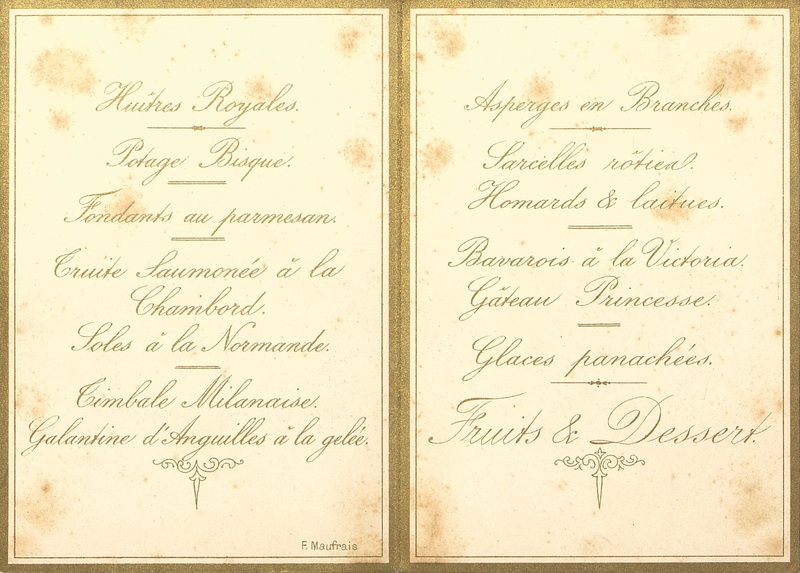 Huîtres Royales.
Potage Bisque.
Fondants au parmesan.
Truite Saumonée à la
Chambord.
Soles à la Normande.
Timbale Milanaise.
Galantine d'Anguilles à la gelée.
F. Maufrais
Asperges en Branches.
Sarcelles rôties.
Homards & laitues.
Bavarois à la Victoria.
Gâteau Princesse.
Glaces panachées.
Fruits & Dessert.